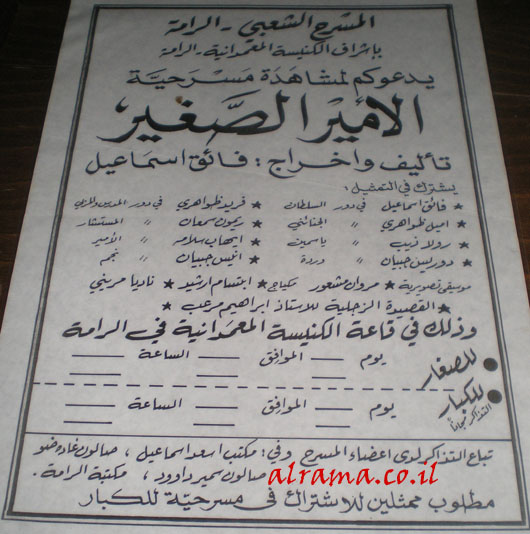 المسرح الشعبي - الرامة
بإشراف الكنيسة المعمدانية - الرامة
يدعوكم لمشاهدة مسرحية
الأمير الصغير
تأليف واخراج : فائق اسماعيل
يشترك في التمثيل :
★ فائق اسماعيل في دور السلطان ★ فريد ظواهري في دور المدرس والمربي
★ اميل ظواهري " الجنائني ★ ريمون سمعان " المستشار
★ رولا ذيب " ياسمين ★ ايهاب سلامه " الأمير
★ دوريس جبيان " وردة ★ انيس جبيان " نجم
موسيقى تصويرية ★ مروان مشعور مكياج ★ ابتسام ارشيد ★ ناديا مريني
★ القصيدة الزجلية للاستاذ ابراهيم مرعب ★
وذلك في قاعة الكنيسة المعمدانية في الرامة
● للصغار يوم ــــ الموافق ــــ الساعة ــــ
● للكبار يوم ــــ الموافق ــــ الساعة ــــ
التذاكر مجاناً
تباع التذاكر لدى اعضاء المسرح وفي : مكتب اسعد اسماعيل ، صالون غاده ضو
صالون سمير داوود ، مكتبة الرامة .
alrama.co.il
مطلوب ممثلين للاشتراك في مسرحية للكبار